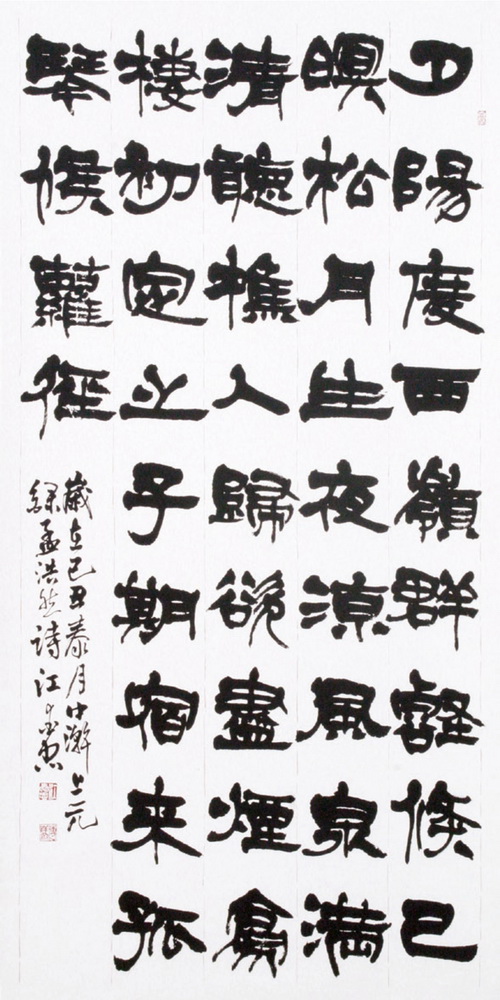 夕陽度西嶺群壑倏已
暝松月生夜涼風泉滿
清聽樵人歸欲盡煙鳥
棲初定之子期宿来孤
琴候蘿徑
歲在己丑泰月中澣上元
錄孟浩然詩江